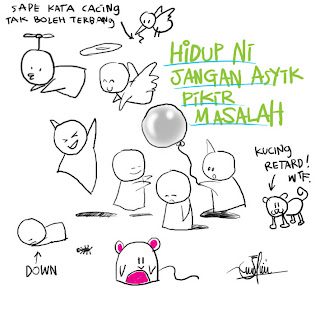 SAPE KATA CACING
TAK BOLEH TERBANG
HIDUP NI
JANGAN ASYIK
PIKIR
MASALAH
KUCING
RETARD!
WTF.
DOWN